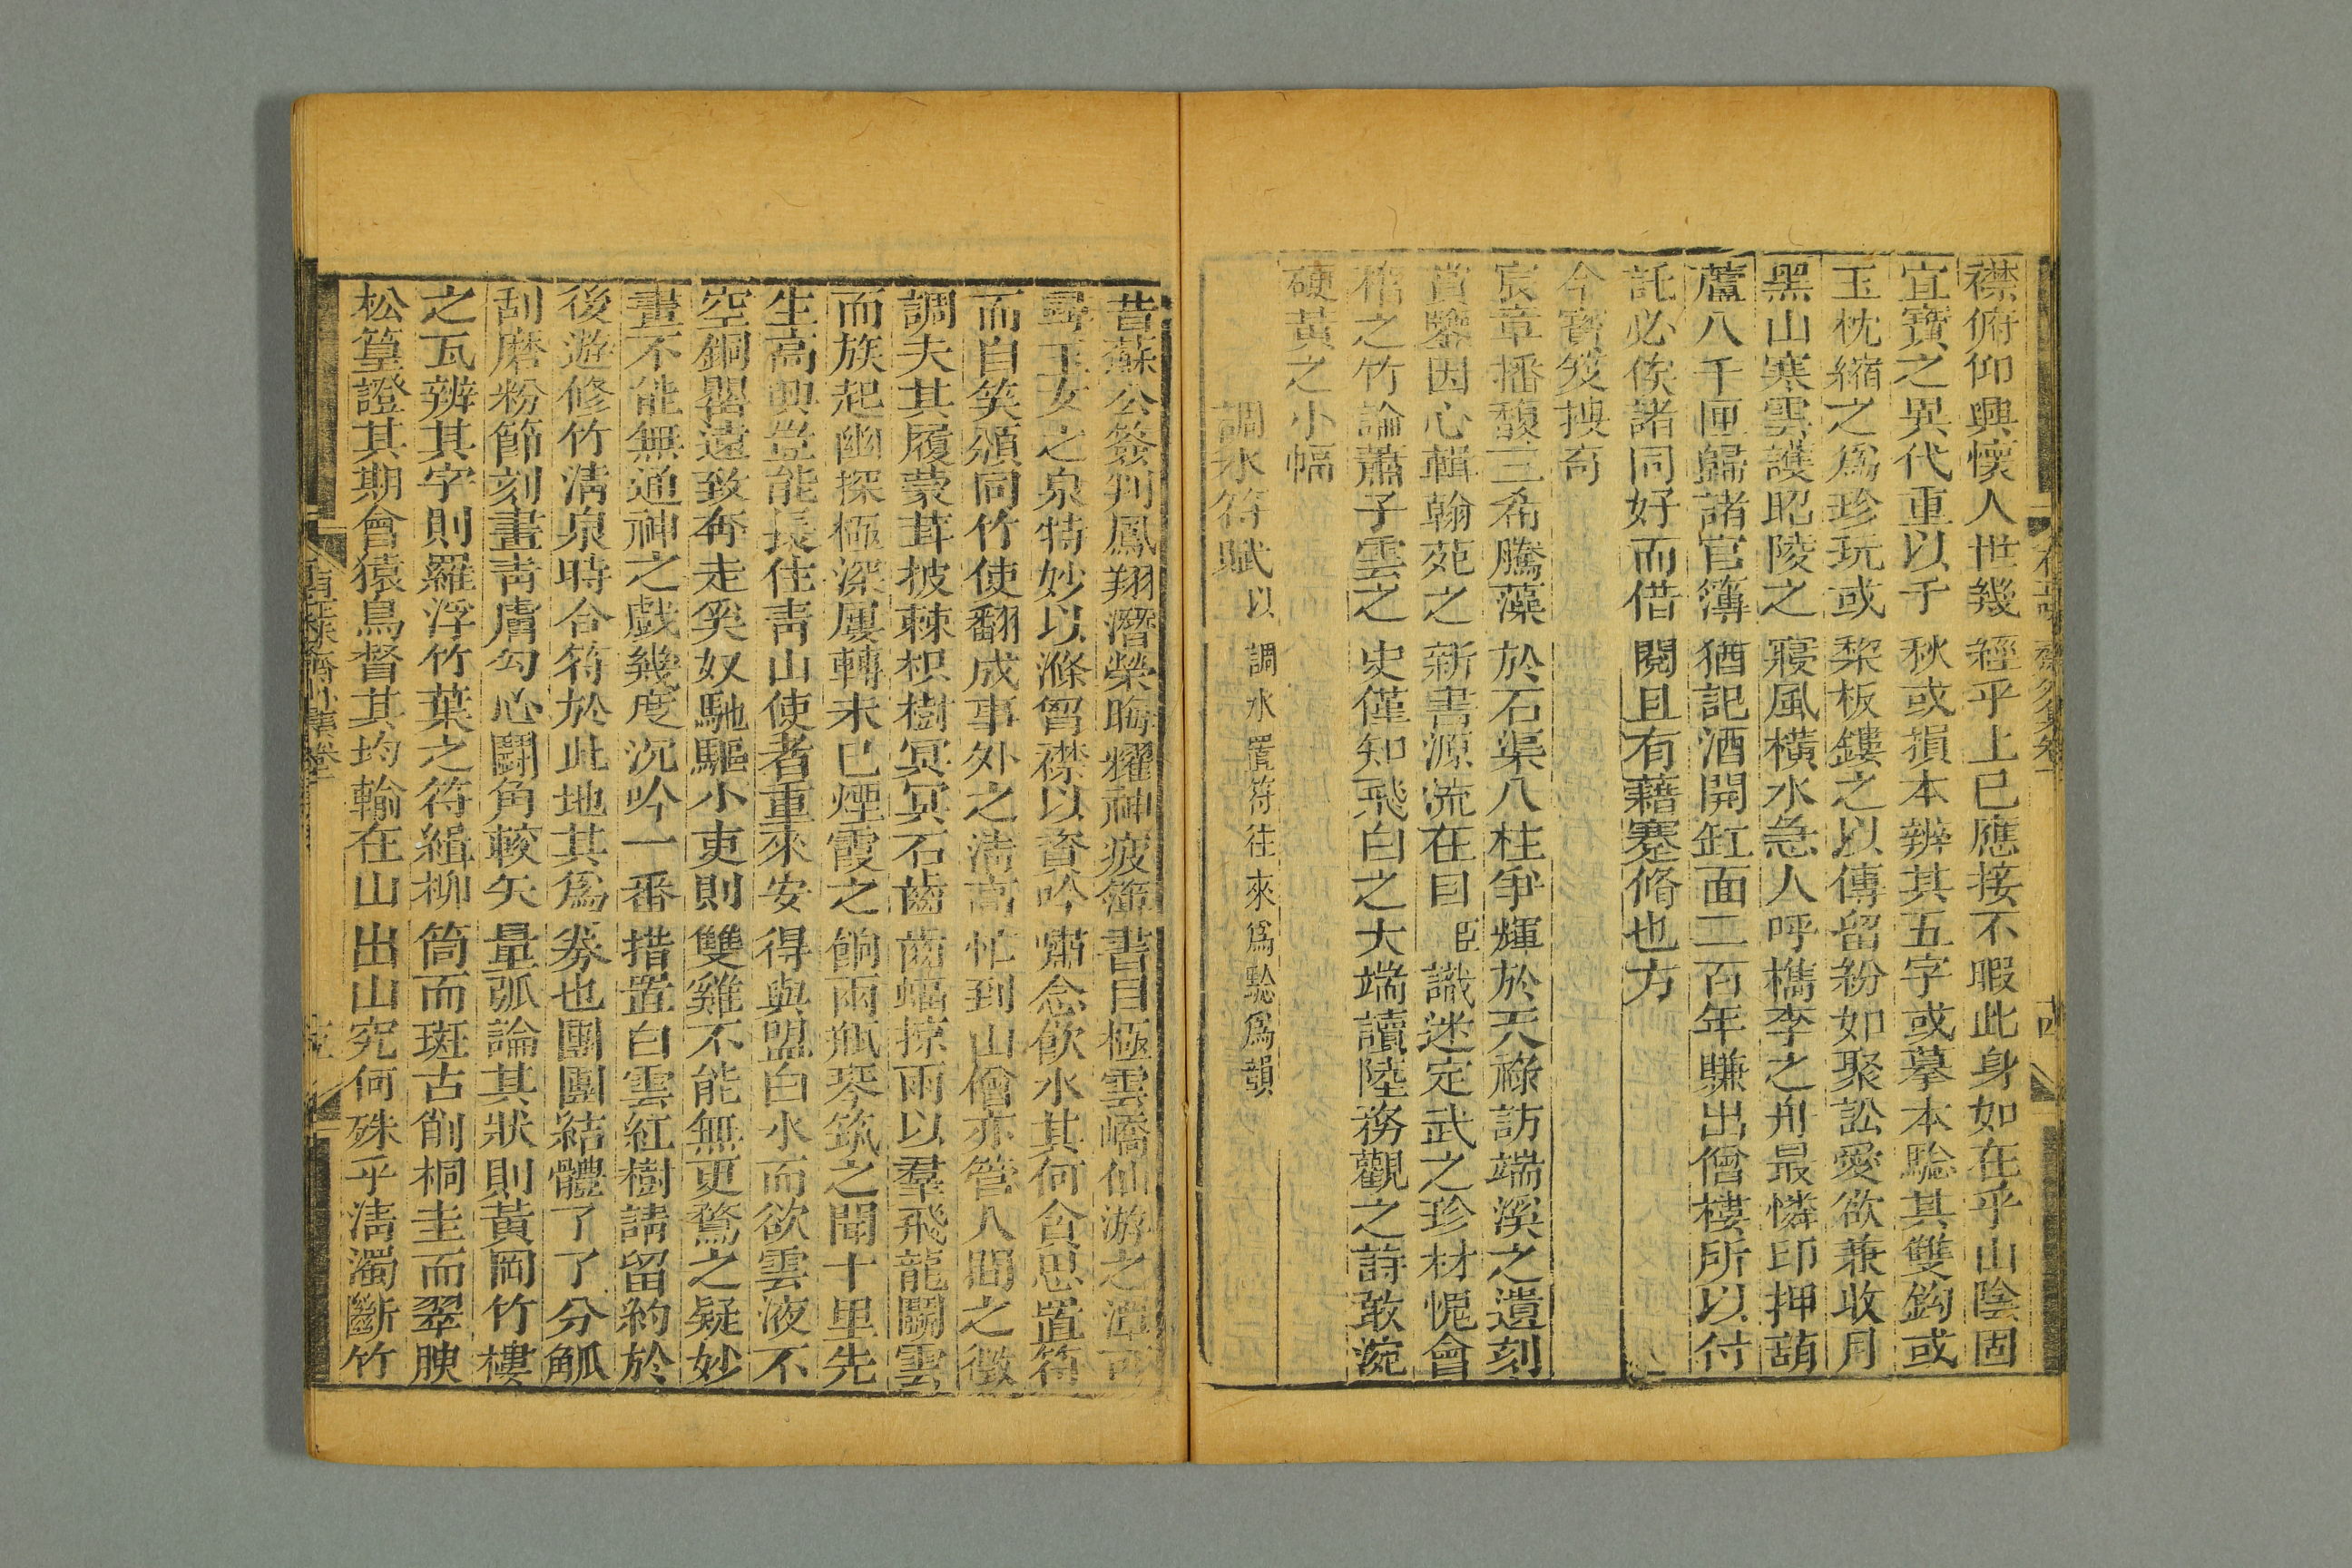 襟俯仰興懷人世幾經乎上巳應接不暇此身如在乎山陰固
宜寶之異代重以千秋或損本辨其五字或摹本驗其雙鈎或
玉枕縮之爲珍玩或棃板鏤之以傳留紛如聚訟愛欲兼收月
黑山寒雲護昭陵之寢風橫水急人呼檇李之舟最憐印押葫
蘆八千匣歸諸官簿猶記酒開缸面二百年賺出僧樓所以付
託必俟諸同好而借閱且有藉蹇脩也方
今寶笈搜奇
宸章播馥三希騰藻於石渠八柱爭輝於天祿訪端溪之遺刻
賞鑒因心輯翰苑之新書源流在目臣識迷定武之珍材愧會
稽之竹論蕭子雲之史僅知飛白之大端讀陸務觀之詩敢涴
硬黃之小幅
調水符賦以調水置符往來爲驗爲韻
昔蘇公簽判鳳翔潛榮晦耀神疲簿書目極雲嶠仙游之潭可
尋玉女之泉特妙以滌智襟以資吟肅念飲水其何貪思置符
而自笑頒同竹使翻成事外之淸高忙到山僧亦管人間之徵
調夫其履蒙茸披棘枳樹冥冥石齒齒蝠掠雨以羣飛龍鬭雲
而族起幽探極深屢轉未已煙霞之餉兩瓶琴筑之聞十里先
生高興豈能長住靑山使者重來安得與盟白水而欲雲液不
空銅罌遠致奔走奚奴馳驅小吏則雙雞不能無更鶩之疑妙
畫不能無通神之戲幾度沉吟一番措置白雲紅樹請留約於
後遊修竹淸泉時合符於此地其爲劵也團團結體了了分觚
刮磨粉節刻畫靑膚勾心鬭角較矢量弧論其狀則黃岡竹樓
之瓦辨其字則羅浮竹葉之符緝柳筒而斑古削桐圭而翠腴
松篁證其期會猿鳥督其均輸在山出山究何殊乎淸濁斷竹